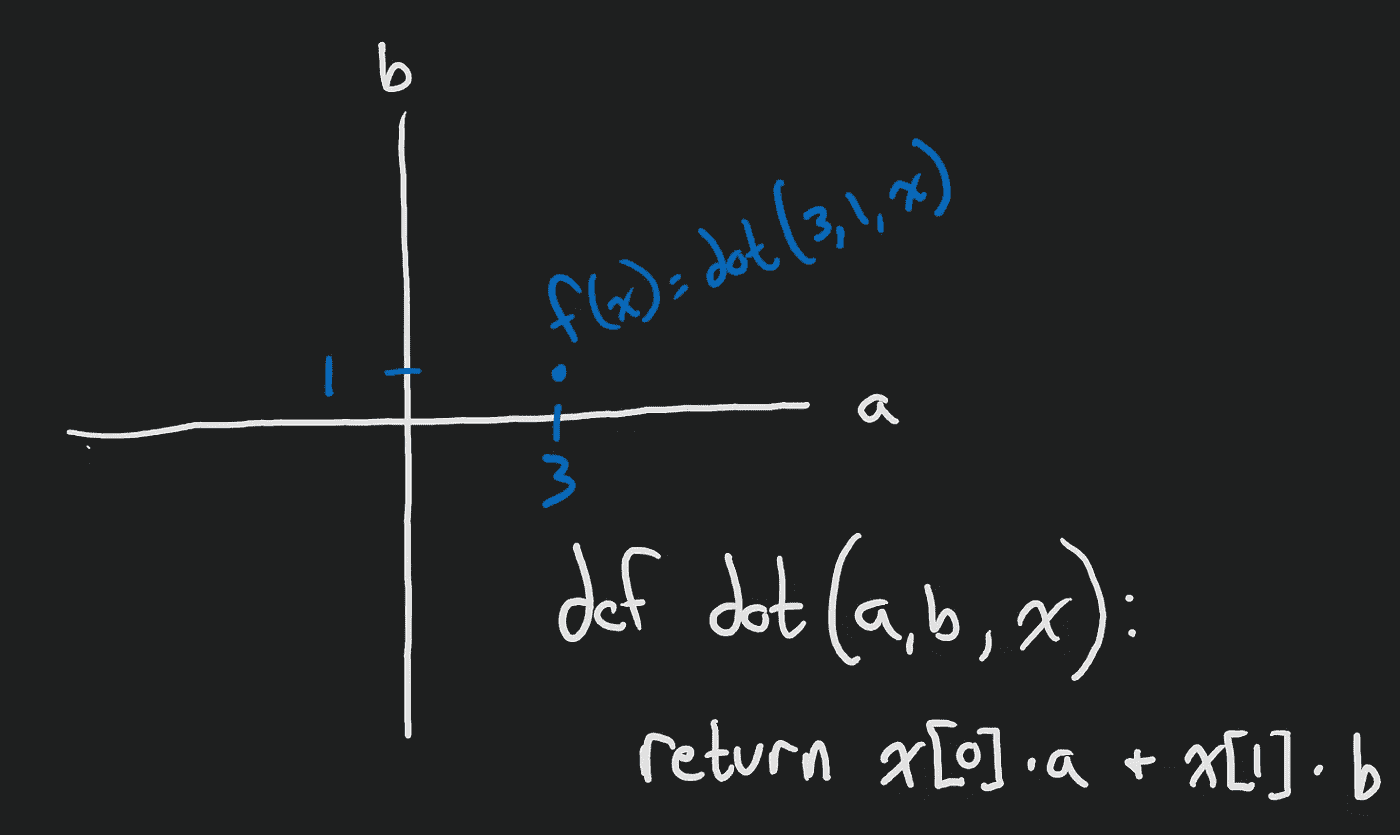 b
f(x) = dot(3,1,x)
1
a
3
def dot(a,b,x):
return x[0]·a + x[1]·b